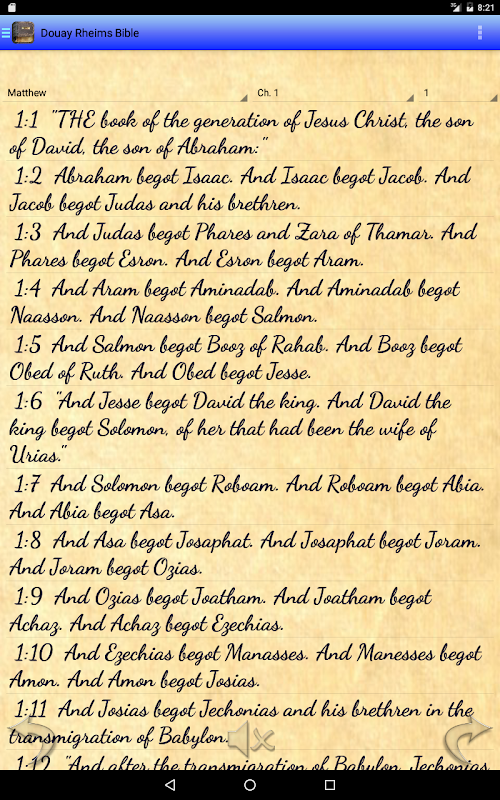 3G 8:21
Douay Rheims Bible
Matthew Ch. 1 1
1:1 "THE book of the generation of Jesus Christ, the son
of David, the son of Abraham:"
1:2 Abraham begot Isaac. And Isaac begot Jacob. And
Jacob begot Judas and his brethren.
1:3 And Judas begot Phares and Zara of Thamar. And
Phares begot Esron. And Esron begot Aram.
1:4 And Aram begot Aminadab. And Aminadab begot
Naasson. And Naasson begot Salmon.
1:5 And Salmon begot Booz of Rahab. And Booz begot
Obed of Ruth. And Obed begot Jesse.
1:6 "And Jesse begot David the king. And David the
king begot Solomon, of her that had been the wife of
Urias."
1:7 And Solomon begot Roboam. And Roboam begot Abia.
And Abia begot Asa.
1:8 And Asa begot Josaphat. And Josaphat begot Joram.
And Joram begot Ozias.
1:9 And Ozias begot Joatham. And Joatham begot
Achaz. And Achaz begot Ezechias.
1:10 And Ezechias begot Manasses. And Manesses begot
Amon. And Amon begot Josias.
1:11 And Josias begot Jechonias and his brethren in the
transmigration of Babylon.
1:12 "And after the transmigration of Babylon, Jechonias